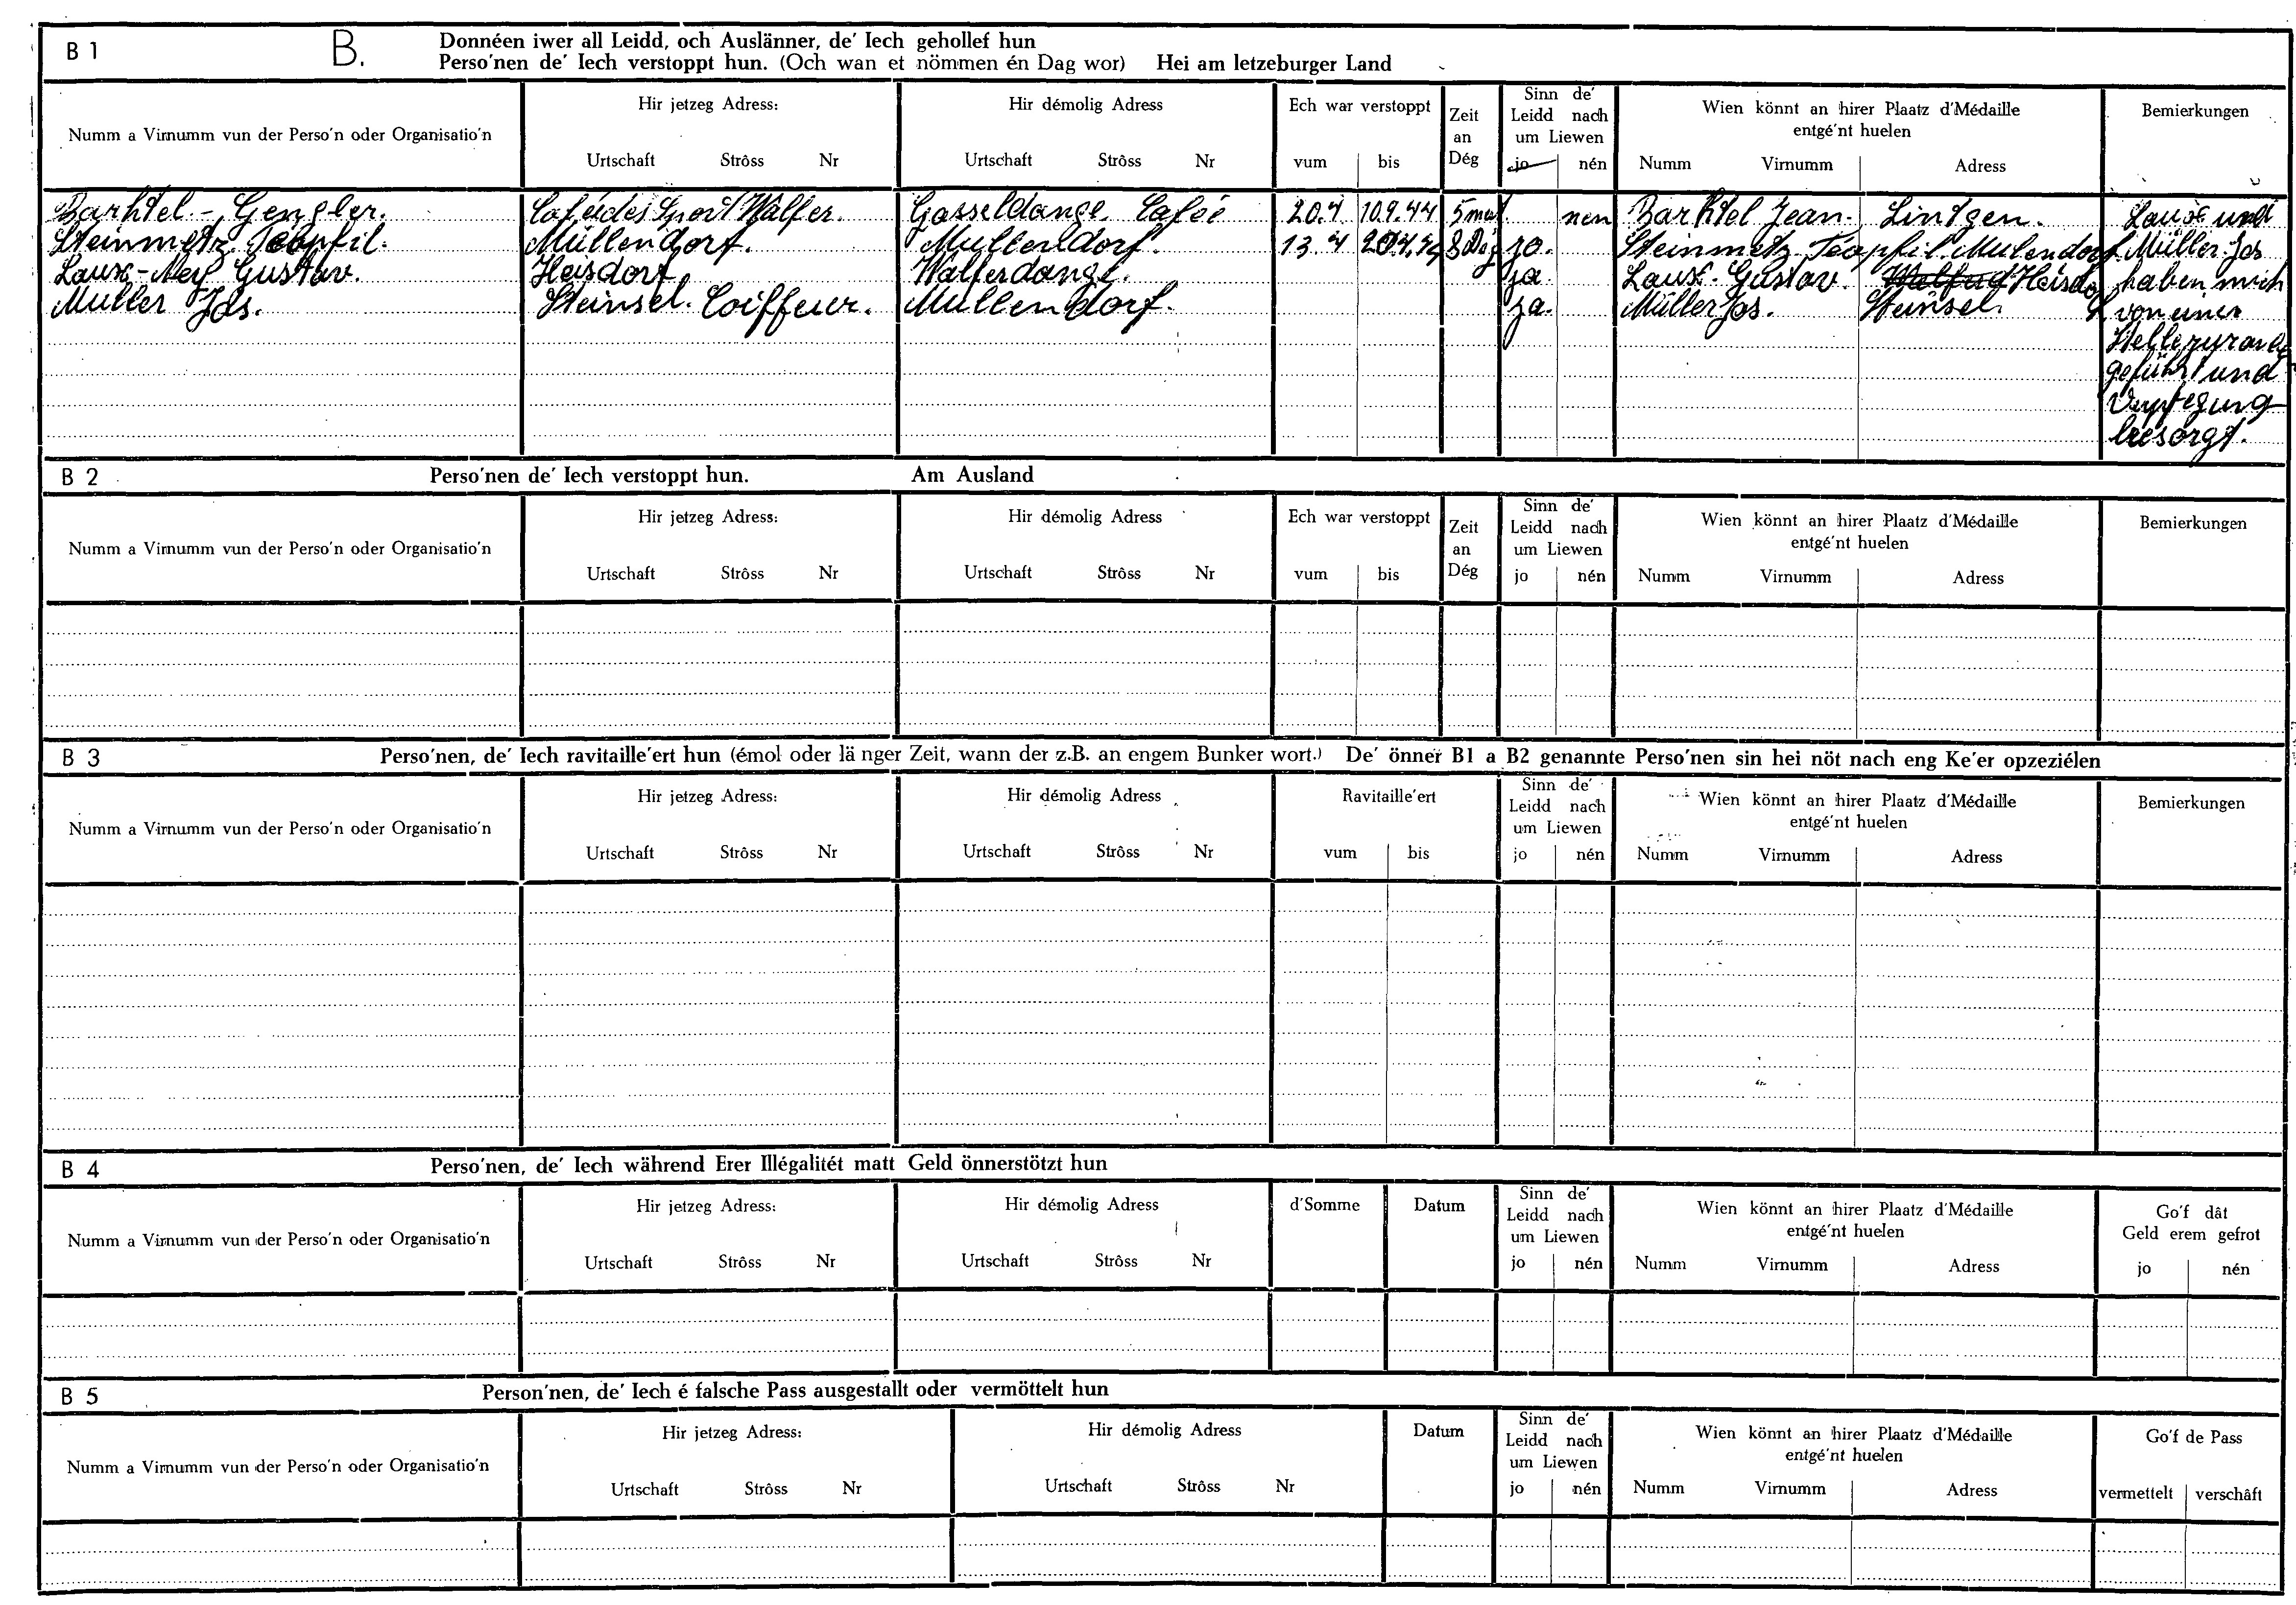 B 1 B. Donnéen iwer all Leidd, och Auslänner, de' Iech gehollef hun
Perso'nen de' Iech verstoppt hun. (Och wan et nömmen én Dag wor) Hei am letzeburger Land
Numm a Virnumm vun der Perso'n oder Organisatio'n
Hir jetzeg Adress:
Urtschaft Strôss Nr
Hir démolig Adress
Urtschaft Strôss Nr
Ech war verstoppt
vum bis
Zeit
an
Dég
Sinn de'
Leidd nach
um Liewen
jo nén
Wien könnt an hirer Plaatz d'Médaille
entgé'nt huelen
Numm Virnumm Adress
Bemierkungen
Barhtel.- Gengler. Caféédes Sport Walfer. Gasseldange. Cafée 20.4 10.9.44 5 mo nen Barhtel Jean. Lintgen.
Steinmetz Teopfil. Müllendorf. Mullendorf. 13.4 20.4.44 8 Deg ja. Steinmetz Teopfil. Mulendorf
Laux-Ney Gustav. Heisdorf Walferdange. ja. Laux. Gustav. Heisdorf
Muller Jos. Steinsel. Coiffeur. Mullendorf. ja. Müller Jos. Steinsel.
Laux und
Müller Jos
haben mich
von einer
Stelle zur ande
geführt und
Verpfegung
besorgt.
B 2 Perso'nen de' Iech verstoppt hun. Am Ausland
Numm a Virnumm vun der Perso'n oder Organisatio'n
Hir jetzeg Adress:
Urtschaft Strôss Nr
Hir démolig Adress
Urtschaft Strôss Nr
Ech war verstoppt
vum bis
Zeit
an
Dég
Sinn de'
Leidd nach
um Liewen
jo nén
Wien könnt an hirer Plaatz d'Médaille
entgé'nt huelen
Numm Virnumm Adress
Bemierkungen
B 3 Perso'nen, de' Iech ravitaille'ert hun (émol oder länger Zeit, wann der z.B. an engem Bunker wort.) De' önner B1 a B2 genannte Perso'nen sin hei nöt nach eng Ke'er opzeziélen
Numm a Virnumm vun der Perso'n oder Organisatio'n
Hir jetzeg Adress:
Urtschaft Strôss Nr
Hir démolig Adress
Urtschaft Strôss Nr
Ravitaille'ert
vum bis
Sinn de'
Leidd nach
um Liewen
jo nén
Wien könnt an hirer Plaatz d'Médaille
entgé'nt huelen
Numm Virnumm Adress
Bemierkungen
B 4 Perso'nen, de' Iech während Erer Illégalitét matt Geld önnerstötzt hun
Numm a Virnumm vun der Perso'n oder Organisatio'n
Hir jetzeg Adress:
Urtschaft Strôss Nr
Hir démolig Adress
Urtschaft Strôss Nr
d'Somme
Datum
Sinn de'
Leidd nach
um Liewen
jo nén
Wien könnt an hirer Plaatz d'Médaille
entgé'nt huelen
Numm Virnumm Adress
Go'f dât
Geld erem gefrot
jo nén
B 5 Person'nen, de' Iech é falsche Pass ausgestallt oder vermöttelt hun
Numm a Virnumm vun der Perso'n oder Organisatio'n
Hir jetzeg Adress:
Urtschaft Strôss Nr
Hir démolig Adress
Urtschaft Strôss Nr
Datum
Sinn de'
Leidd nach
um Liewen
jo nén
Wien könnt an hirer Plaatz d'Médaille
entgé'nt huelen
Numm Virnumm Adress
Go'f de Pass
vermettelt verschâft